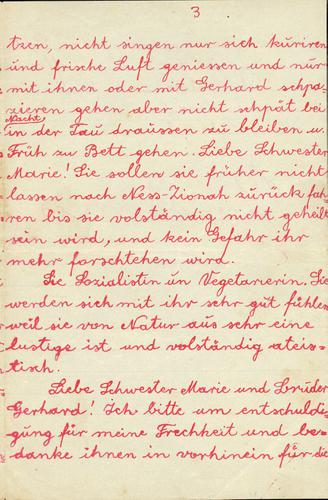 3
tzen, nicht singen nur sich kuriren
und frische Luft geniessen und nur
mit ihnen oder mit Gerhard schpa-
zieren gehen aber nicht schpät bei
Nacht
in der Tau draussen zu bleiben u.
Früh zu Bett gehen. Liebe Schwester
Marie! Sie sollen sie früher nicht
lassen nach Ness-Zionah zurück fah-
ren bis sie volständig nicht geheilt
sein wird, und kein Gefahr ihr
mehr forschtehen wird.
Sie Sozialistin un Vegetarierin. Sie
werden sich mit ihr sehr gut fühlen
weil sie von Natur aus sehr eine
lustige ist und volständig ateis-
tisch.
Liebe Schwester Marie und Bruder
Gerhard! Ich bitte um entschuldi-
gung für meine Frechheit und be-
danke ihnen in vorhinein für die